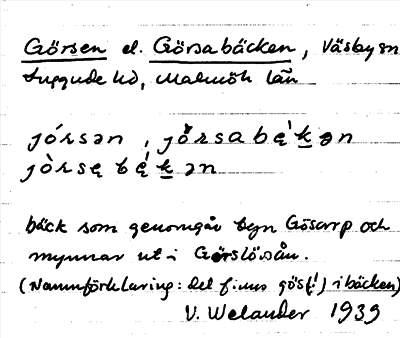 Görsen el. Görsabäcken, Väsby sn
Luggude hd, Malmöh. län
jórsən, jö̀rsabę́kən
jòrsębę́kən
bäck som genomgår byn Gösarp och
mynnar ut i Görslövsån.
(Namnförklaring: det finns gös(!) i bäcken)
V. Welander 1939